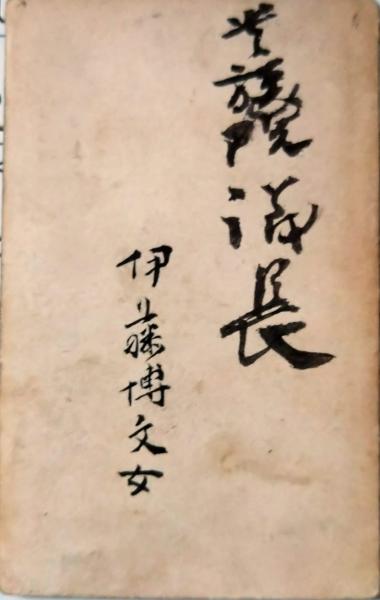 貴族院議長
伊藤博文女